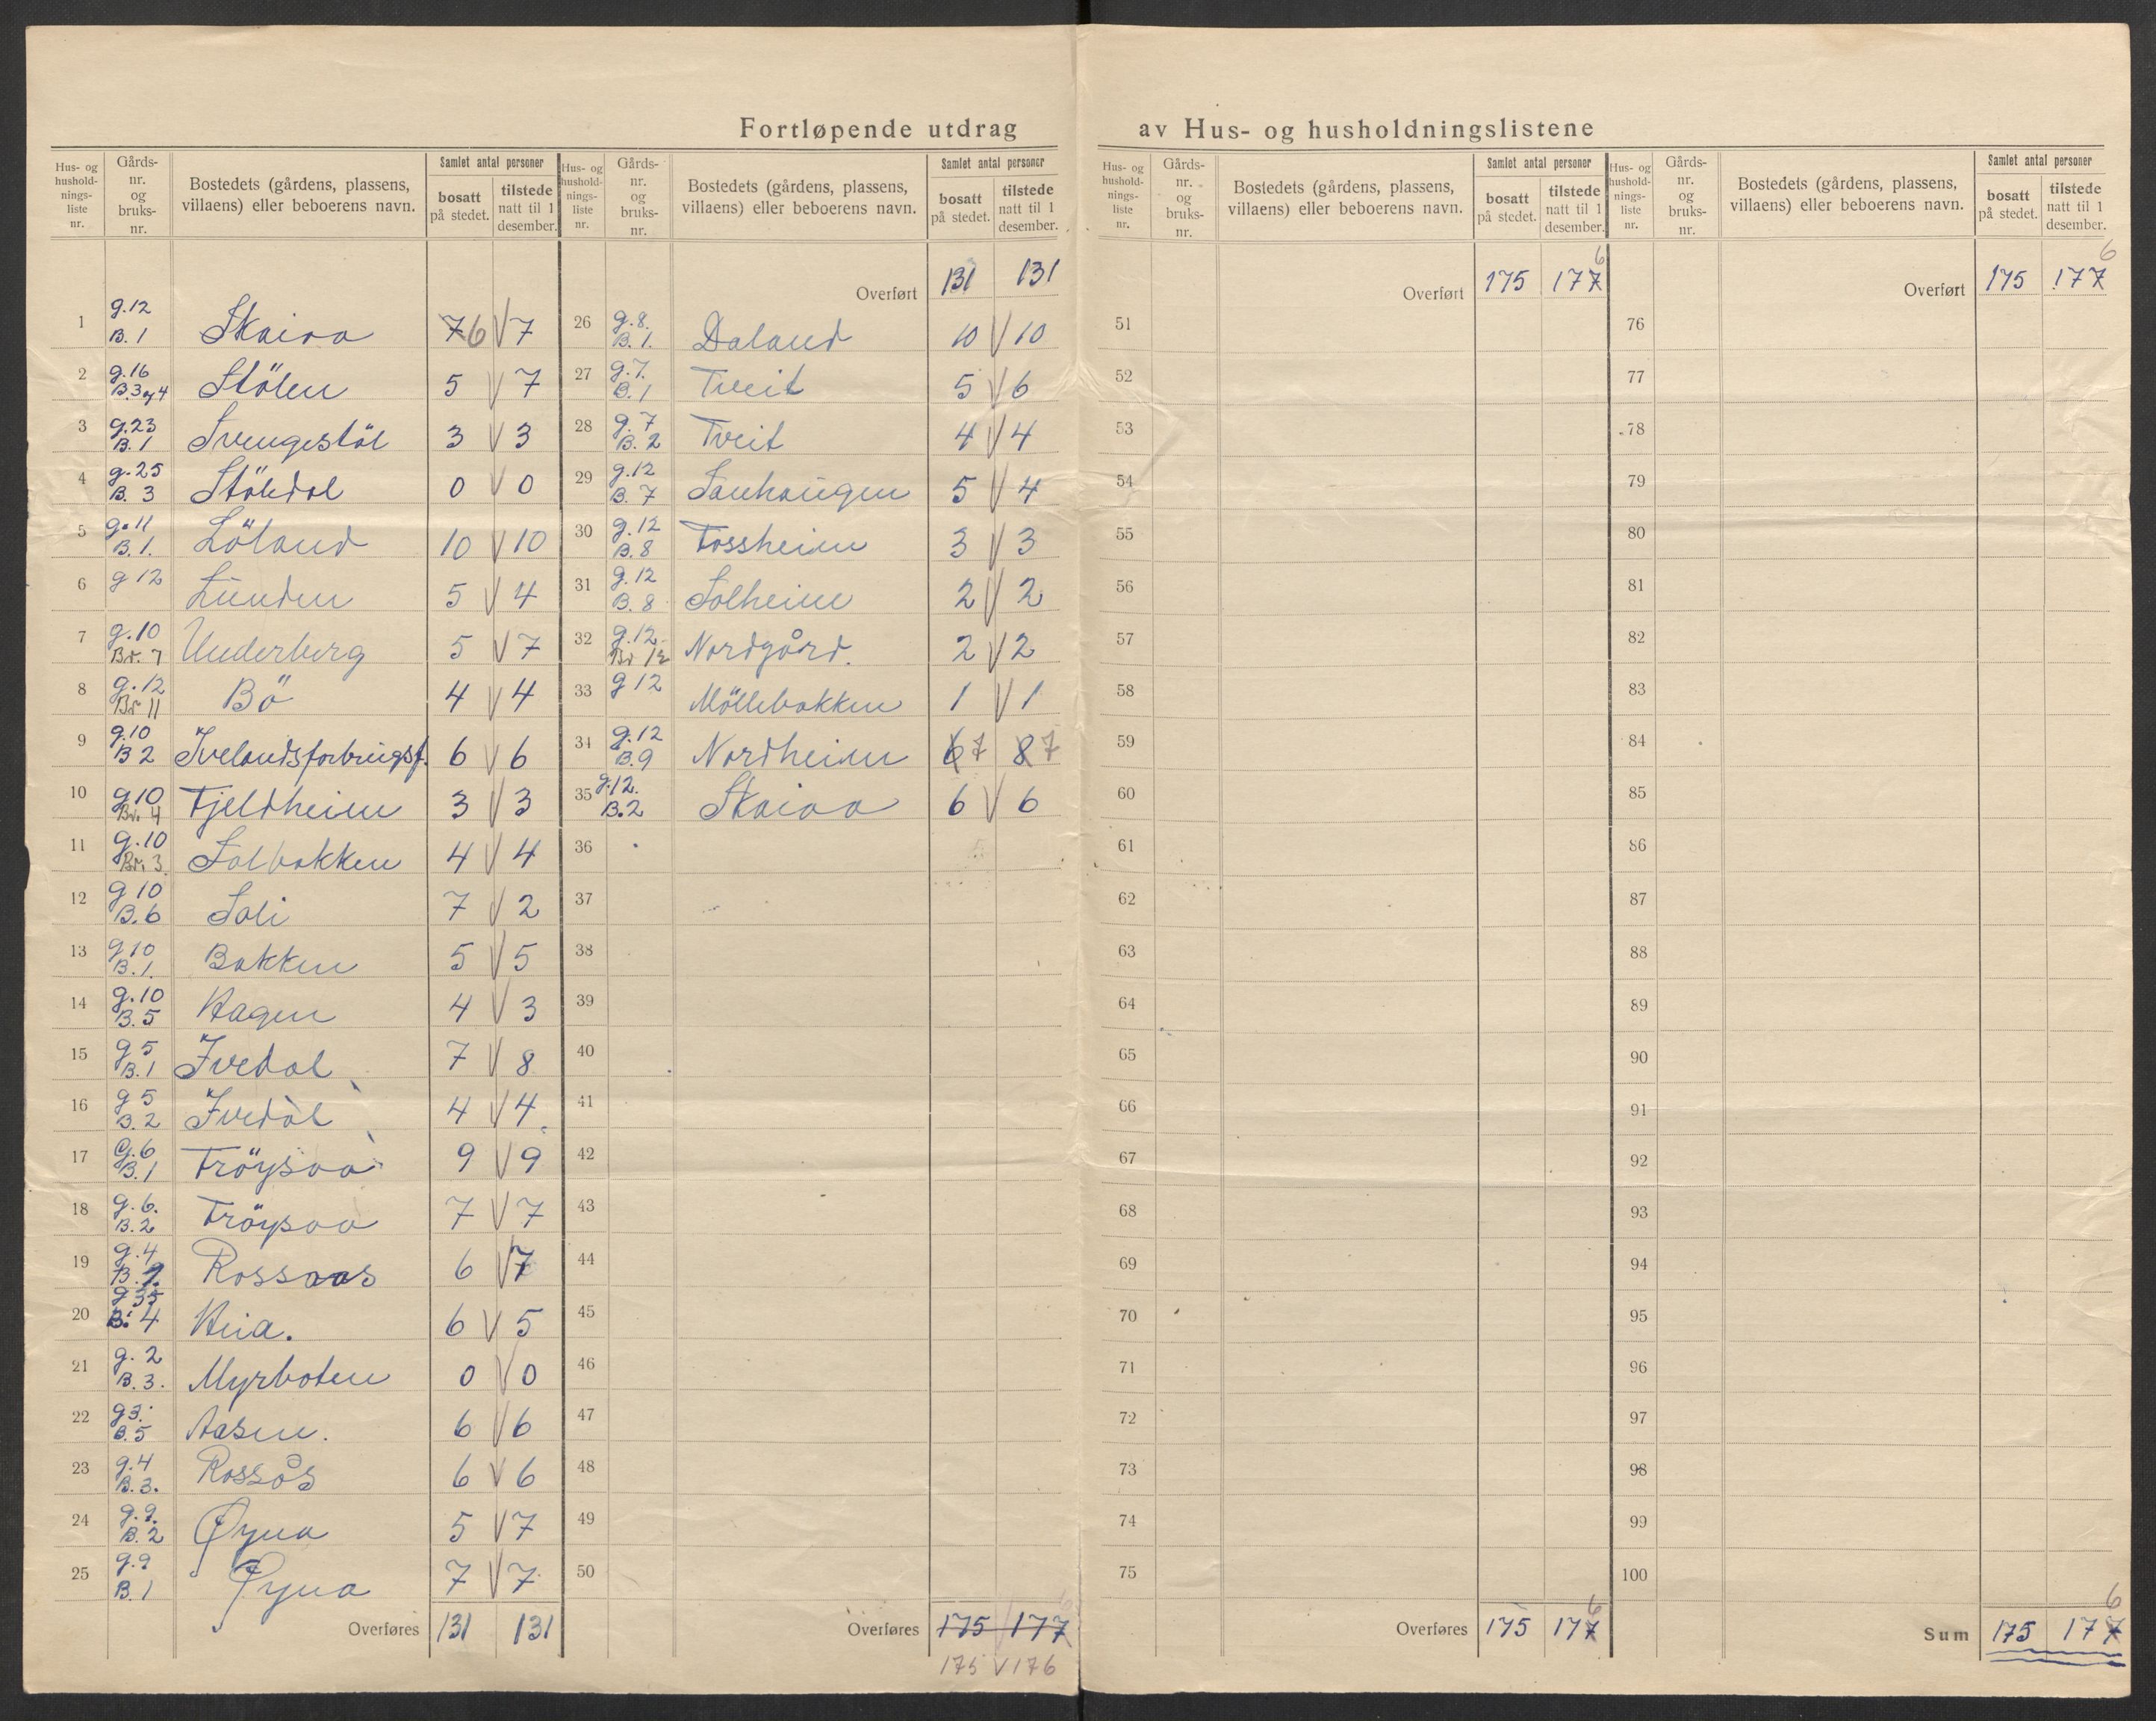 Fortløpende utdrag av Hus- og husholdningslistene
Hus- og husholdnings-liste nr. | Gårds-nr. og bruks-nr. | Bostedets (gårdens, plassens, villaens) eller beboerens navn. | Samlet antal personer | bosatt på stedet. | tilstede natt til 1 desember.
1 g.12 B.1 Skaiaa 7 6 V 7
2 g.16 B.3 og 4 Stölen 5 V 7
3 g.23 B.1 Svengestöl 3 V 3
4 g.25 B.3 Stöledal 0 V 0
5 g.11 B.1. Löland 10 V 10
6 g 12 Lunden 5 V 4
7 g.10 Br. 7 Underberg 5 V 7
8 g.12 Br 11 Bö 4 V 4
9 g.10 B 2 Ivelandsforbrugsf. 6 V 6
10 g10 Br. 4 Fjeldheim 3 V 3
11 g.10 Br. 3. Solbakken 4 V 4
12 g 10 B.6 Soli 7 V 2
13 g10 B.1. Bakken 5 V 5
14 g.10 B.5 Hagen 4 V 3
15 g5 B.1 Ivedal 7 V 8
16 g 5 B.2 Ivedal 4 V 4
17 G.6 B.1 Fröysaa 9 V 9
18 g.6. B.2 Fröysaa 7 V 7
19 g.4 Rossaas 6 V 7
20 B. 4 Heia. 6 V 5
21 g. 2 B.3. Myrboten 0 V 0
22 g3. B.5 Aasen. 6 V 6
23 g.4 B.3. Rossås 6 V 6
24 g.9. B.2 Øyna 5 V 7
25 g.9 B.1 Øyna 7 V 7
Overføres 131 131
Hus- og husholdnings-liste nr. | Gårds-nr. og bruks-nr. | Bostedets (gårdens, plassens, villaens) eller beboerens navn. | Samlet antal personer | bosatt på stedet. | tilstede natt til 1 desember.
Overført 131 131
26 g.8. B.1. Daland 10 V 10
27 g.7. B.1 Tveit 5 V 6
28 g.7 B.2 Tveit 4 V 4
29 g.12 B.7 Sauhaugen 5 V 4
30 g.12 B.8 Fossheim 3 V 3
31 g.12 B.8 Solheim 2 V 2
32 g.12 Br 12 Nordgård. 2 V 2
33 g 12 Möllebakken 1 V 1
34 g.12 B.9 Nordheim 6 7 8 7
35 g.12. B.2 Skaiaa 6 V 6
36
37
38
39
40
41
42
43
44
45
46
47
48
49
50
Overføres 175 177
175 V 176
Hus- og husholdnings-liste nr. | Gårds-nr. og bruks-nr. | Bostedets (gårdens, plassens, villaens) eller beboerens navn. | Samlet antal personer | bosatt på stedet. | tilstede natt til 1 desember.
Overført 175 177 6
51
52
53
54
55
56
57
58
59
60
61
62
63
64
65
66
67
68
69
70
71
72
73
74
75
Overføres 175 177 6
Hus- og husholdnings-liste nr. | Gårds-nr. og bruks-nr. | Bostedets (gårdens, plassens, villaens) eller beboerens navn. | Samlet antal personer | bosatt på stedet. | tilstede natt til 1 desember.
Overført 175 177 6
76
77
78
79
80
81
82
83
84
85
86
87
88
89
90
91
92
93
94
95
96
97
98
99
100
Sum 175 177 6